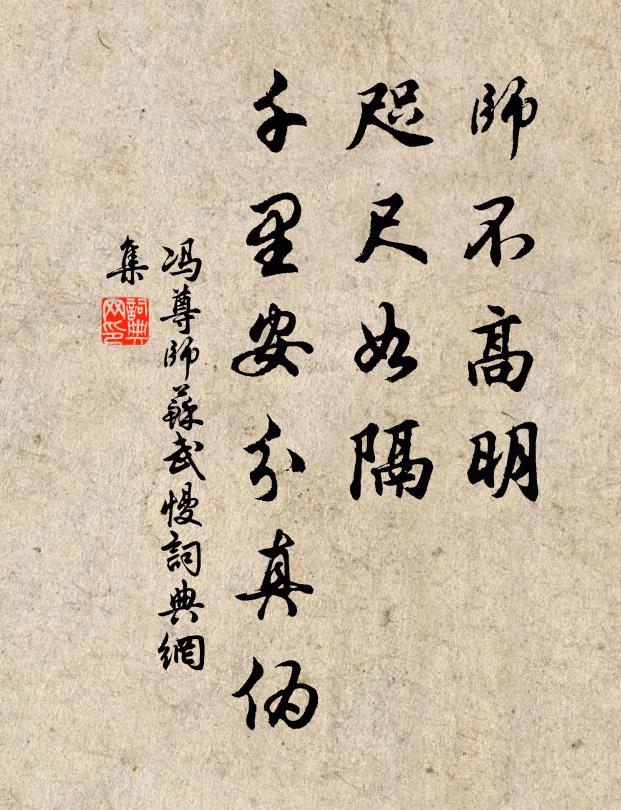 師不高明
咫尺如隔
千里安分真偽
冯尊師蘇武慢詞典網
集
詞典
网印